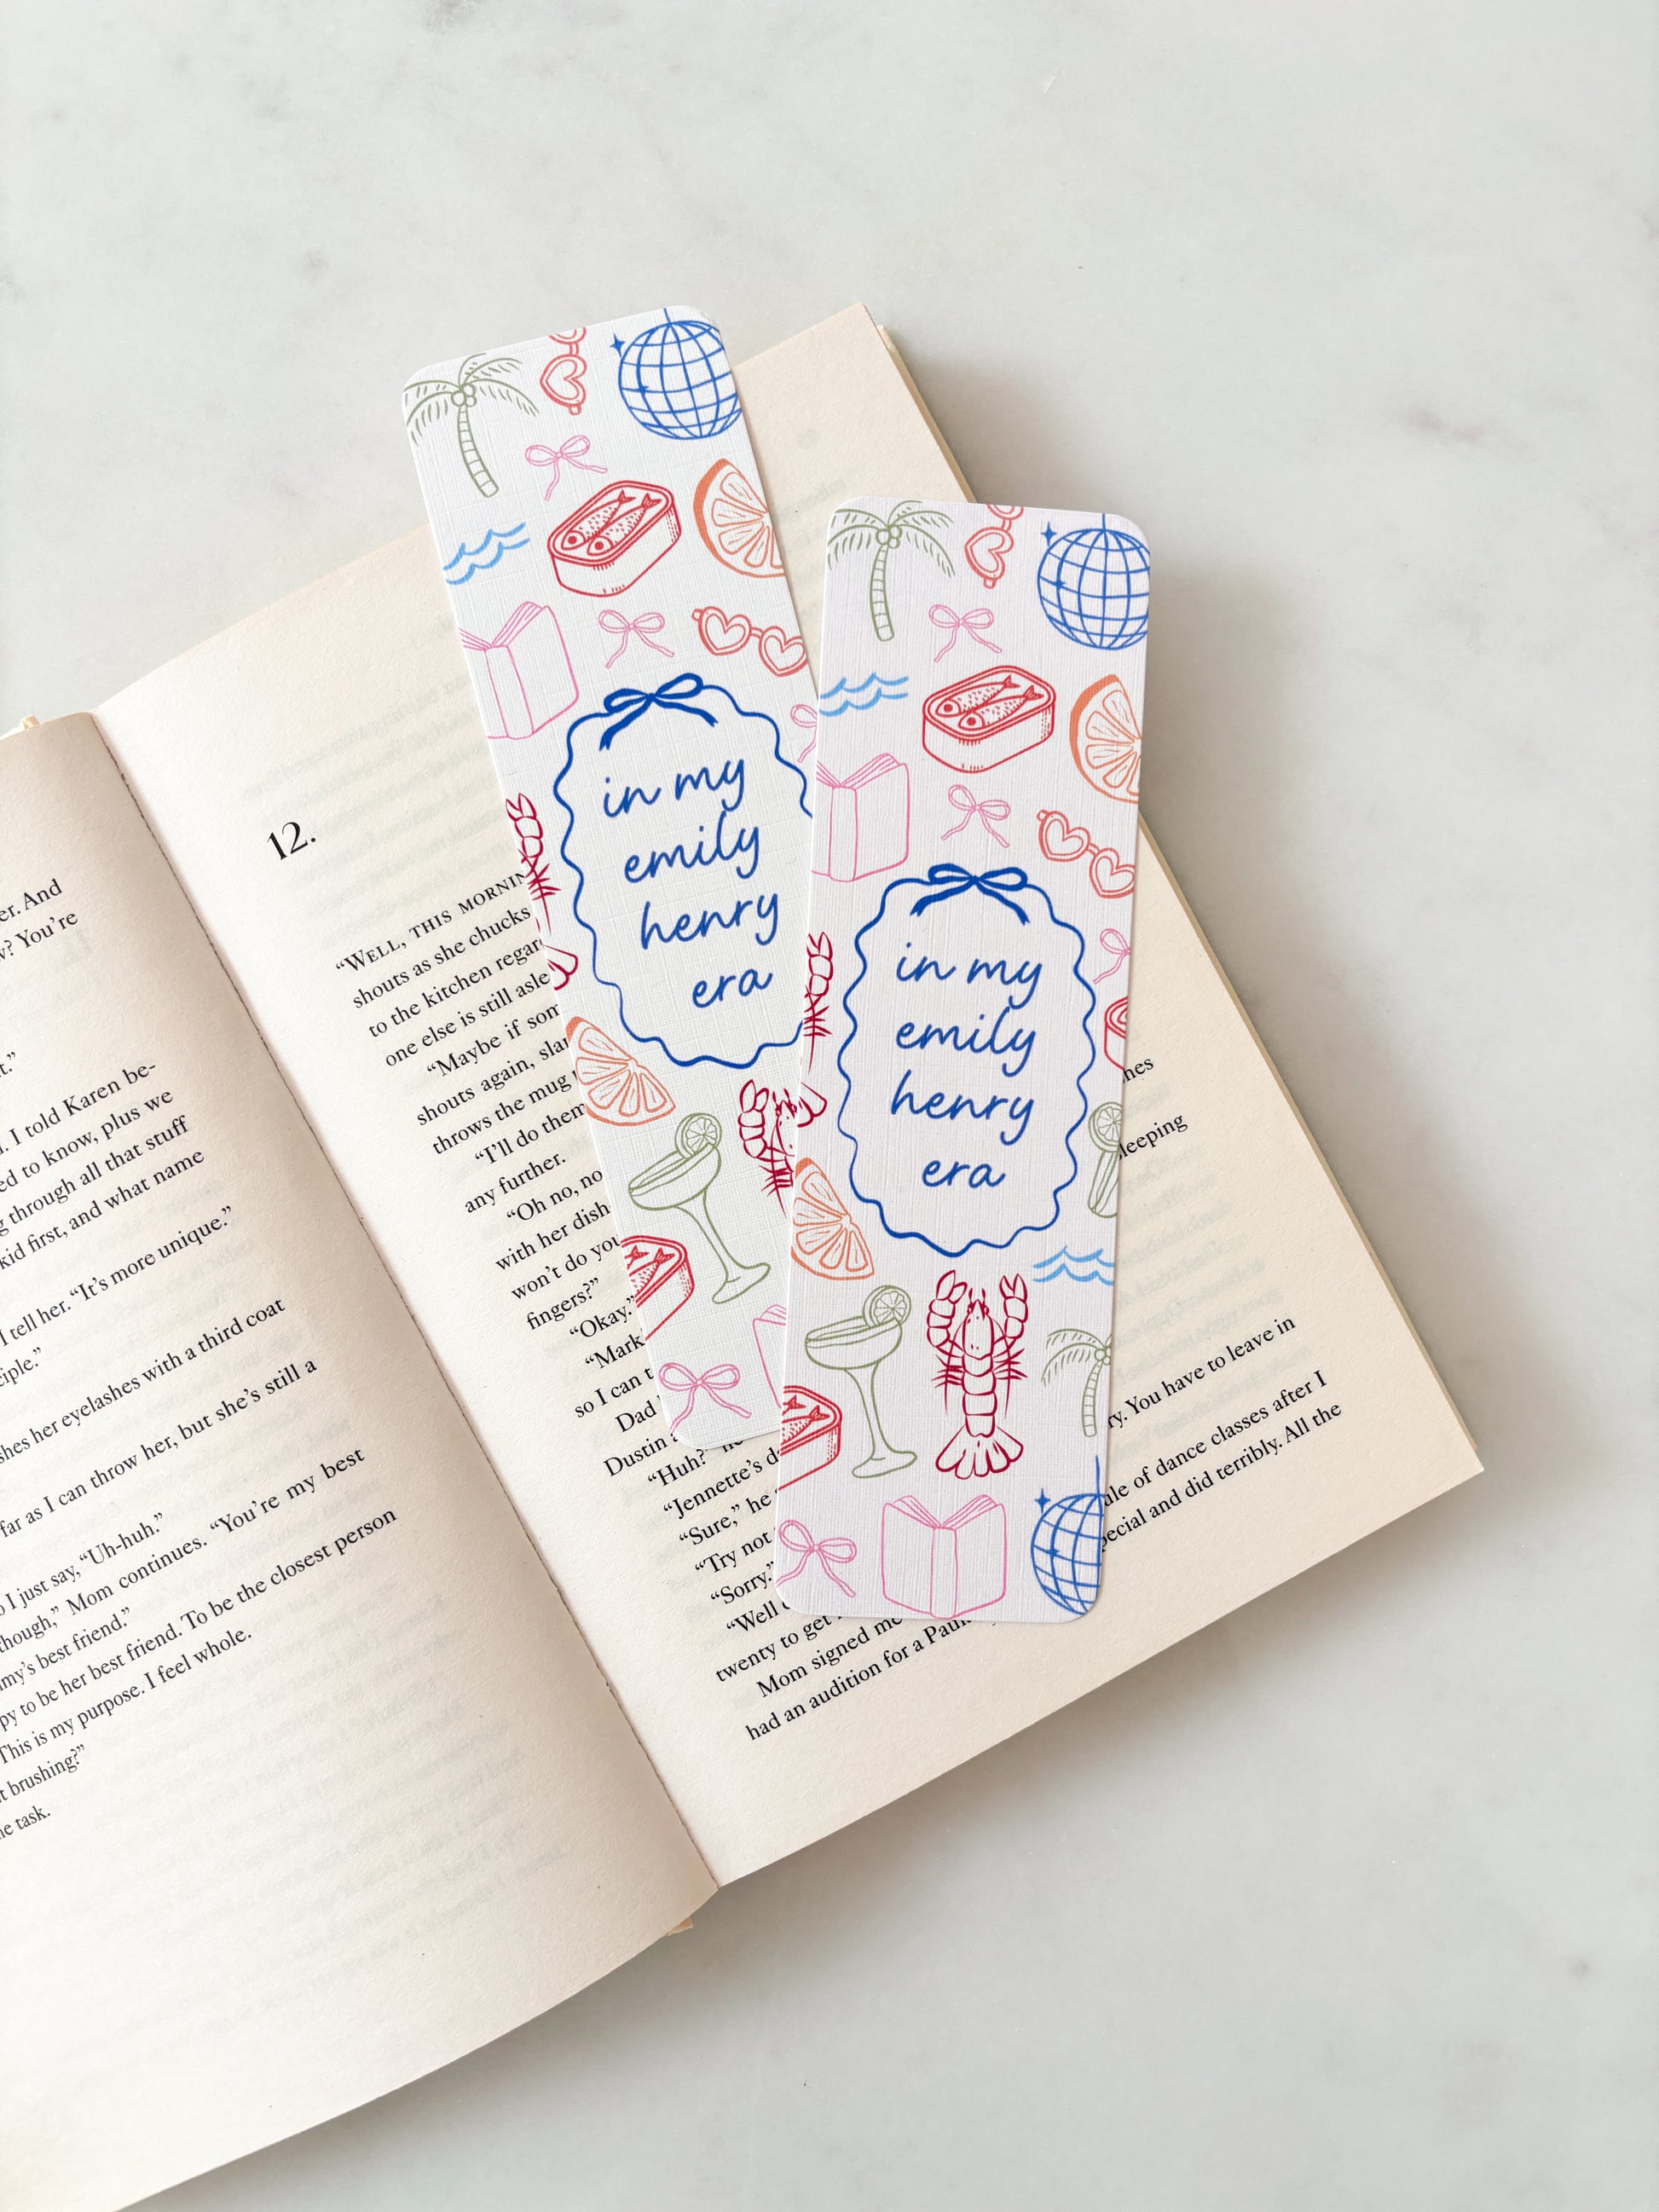 er. And
w? You're
t."
. I told Karen be-
ed to know, plus we
g through all that stuff
kid first, and what name
I tell her. "It's more unique."
ciple."
shes her eyelashes with a third coat
far as I can throw her, but she's still a
o I just say, "Uh-huh."
though," Mom continues. "You're my best
my's best friend."
py to be her best friend. To be the closest person
This is my purpose. I feel whole.
t brushing?"
he task.
12.
"WELL, THIS MORNIN
shouts as she chucks
to the kitchen regar
one else is still asle
"Maybe if som
shouts again, slam
throws the mug
"I'll do them
any further.
"Oh no, no
with her dish
won't do you
fingers?"
"Okay."
"Mark
so I can t
Dad
Dustin
"Huh?" he
"Jennette's d
"Sure," he
"Try not
"Sorry."
"Well
twenty to get
Mom signed me
had an audition for a Paul
hes
leeping
ry. You have to leave in
ule of dance classes after I
pecial and did terribly. All the
in my
emily
henry
era
in my
emily
henry
era